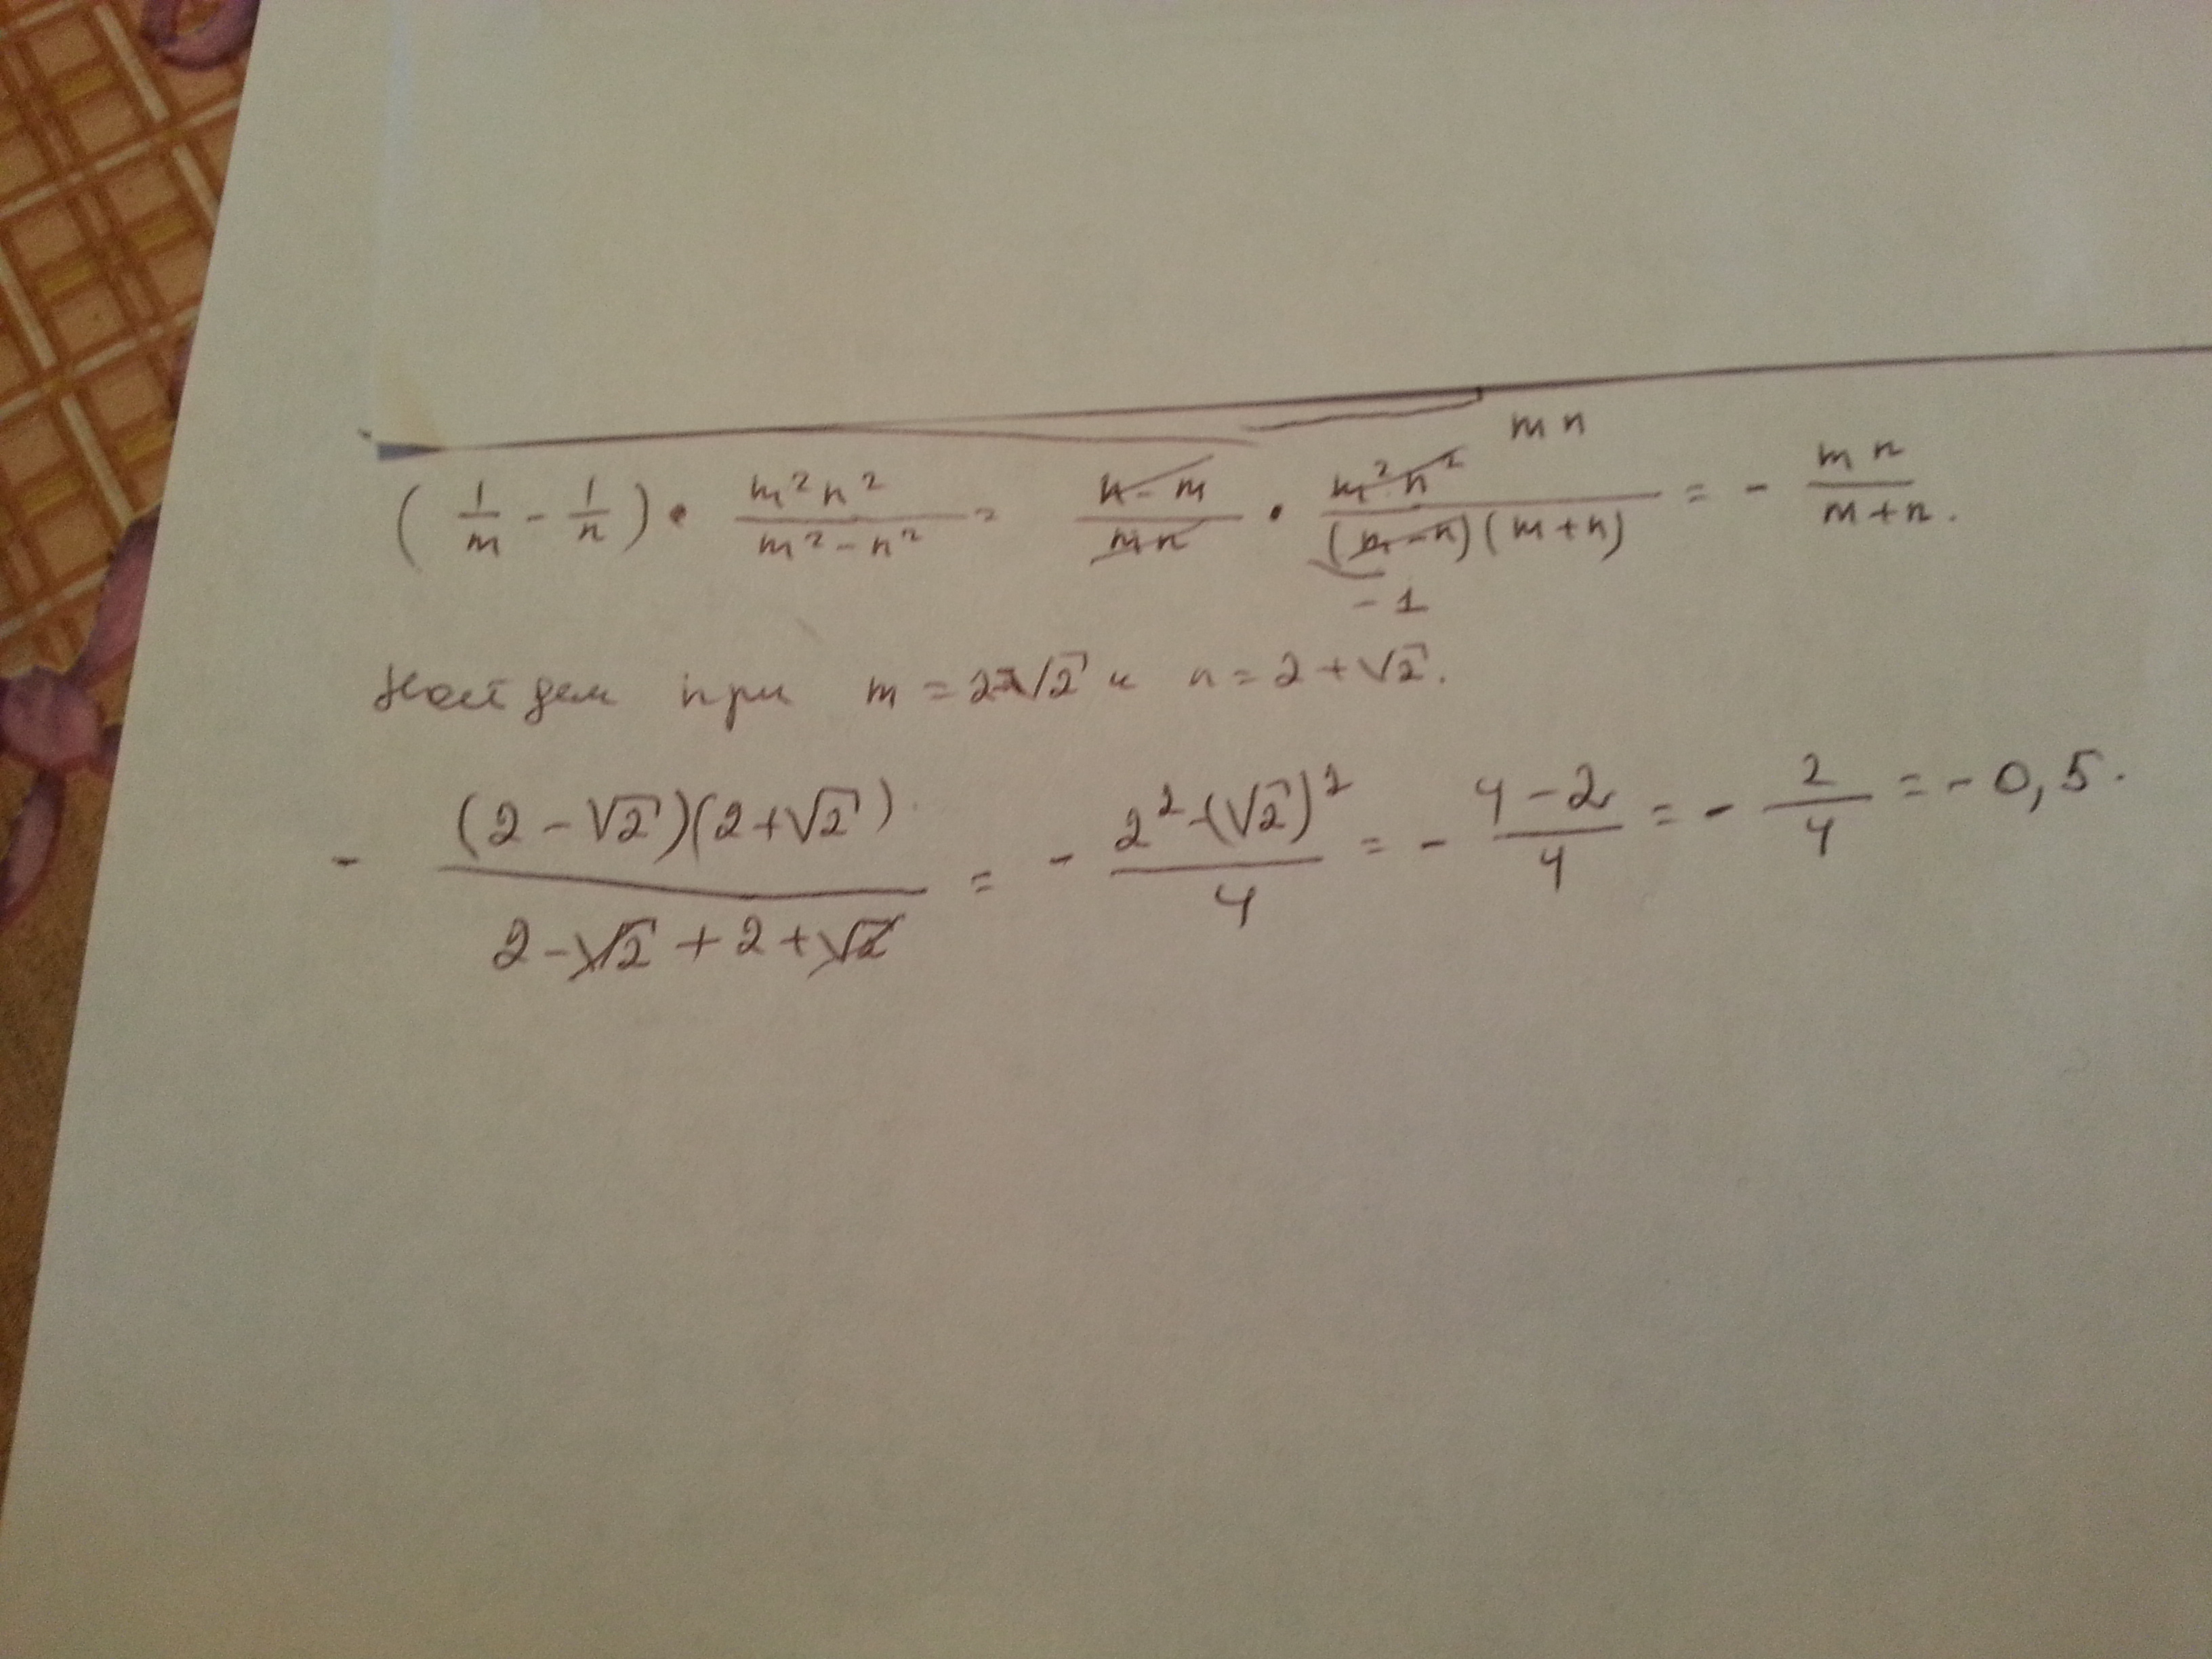 (1/m - 1/n) · m²n²/(m² - n²) = (n - m)/(mn) · m²n²/((m - n)(m + n)) = - mn/(m + n).
mn
-1
Найдем при m = 2-√2 и n = 2 + √2.
- (2 - √2)(2 + √2)/(2 - √2 + 2 + √2) = - (2² - (√2)²)/4 = - (4 - 2)/4 = - 2/4 = - 0,5.